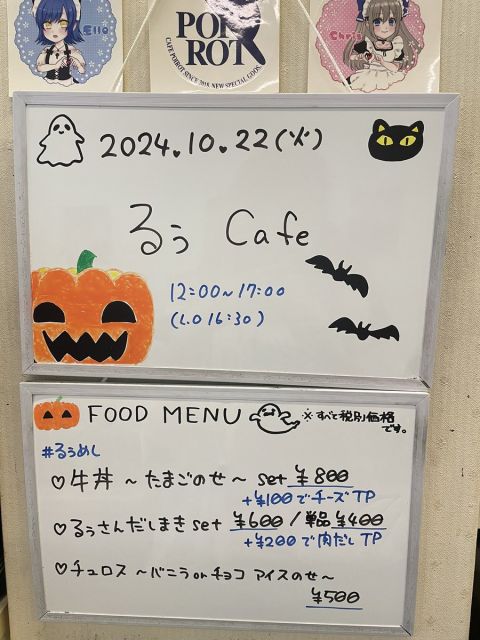 Ello
POPROT
CAFE POIROT SINCE 2018. NEW SPECIAL GOODS.
Chris
2024.10.22(火)
るぅ Cafe
12:00~17:00
(L.O 16:30)
FOOD MENU
※すべて税別価格
です。
#るぅめし
♡牛丼 ~たまごのせ~ set ¥800
+¥100でチーズTP
♡るぅさんだしまき set ¥600 / 単品 ¥400
+¥200で肉だしTP
♡チュロス ~バニラorチョコ アイスのせ~
¥500